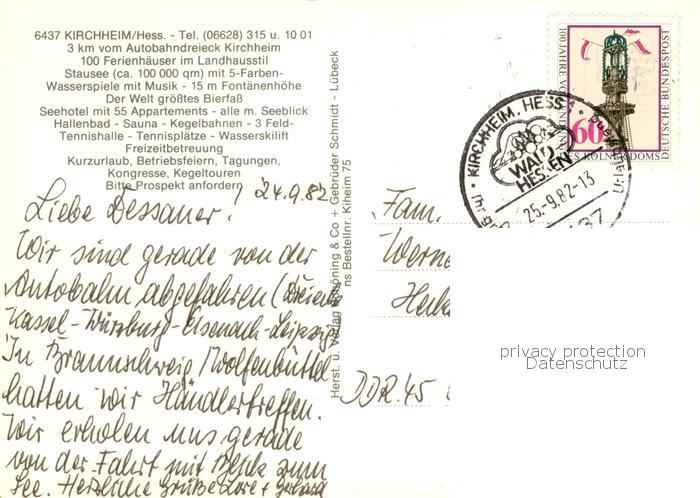 6437 KIRCHHEIM/Hess. - Tel. (06628) 315 u. 10 01
3 km vom Autobahndreieck Kirchheim
100 Ferienhäuser im Landhausstil
Stausee (ca. 100 000 qm) mit 5-Farben-
Wasserspiele mit Musik - 15 m Fontänenhöhe
Der Welt größtes Bierfaß
Seehotel mit 55 Appartements - alle m. Seeblick
Hallenbad - Sauna - Kegelbahnen - 3 Feld-
Tennishalle - Tennisplätze - Wasserskilift
Freizeitbetreuung
Kurzurlaub, Betriebsfeiern, Tagungen,
Kongresse, Kegeltouren
Bitte Prospekt anfordern
24.9.82
Liebe Dessauer!
Wir sind gerade von der
Autobahn abgefahren (Dreieck
Kassel-Würzburg-Eisenach-Leipzig
In Braunschweig/Wolfenbüttel
hatten wir Händlertreffen.
Wir erholen uns gerade
von der Fahrt mit Blick zum
See. Herzliche Grüße Lore + Gerhard
Herst. u. Verlag Schöning & Co + Gebrüder Schmidt - Lübeck
ns Bestellnr. Kiheim 75
DEUTSCHE BUNDESPOST
60
KÖLNER DOMS
KIRCHHEIM, HESS 1
WALD
HESSEN
25.-9.82-13
Fam.
Werne
DDR 45
privacy protection
Datenschutz